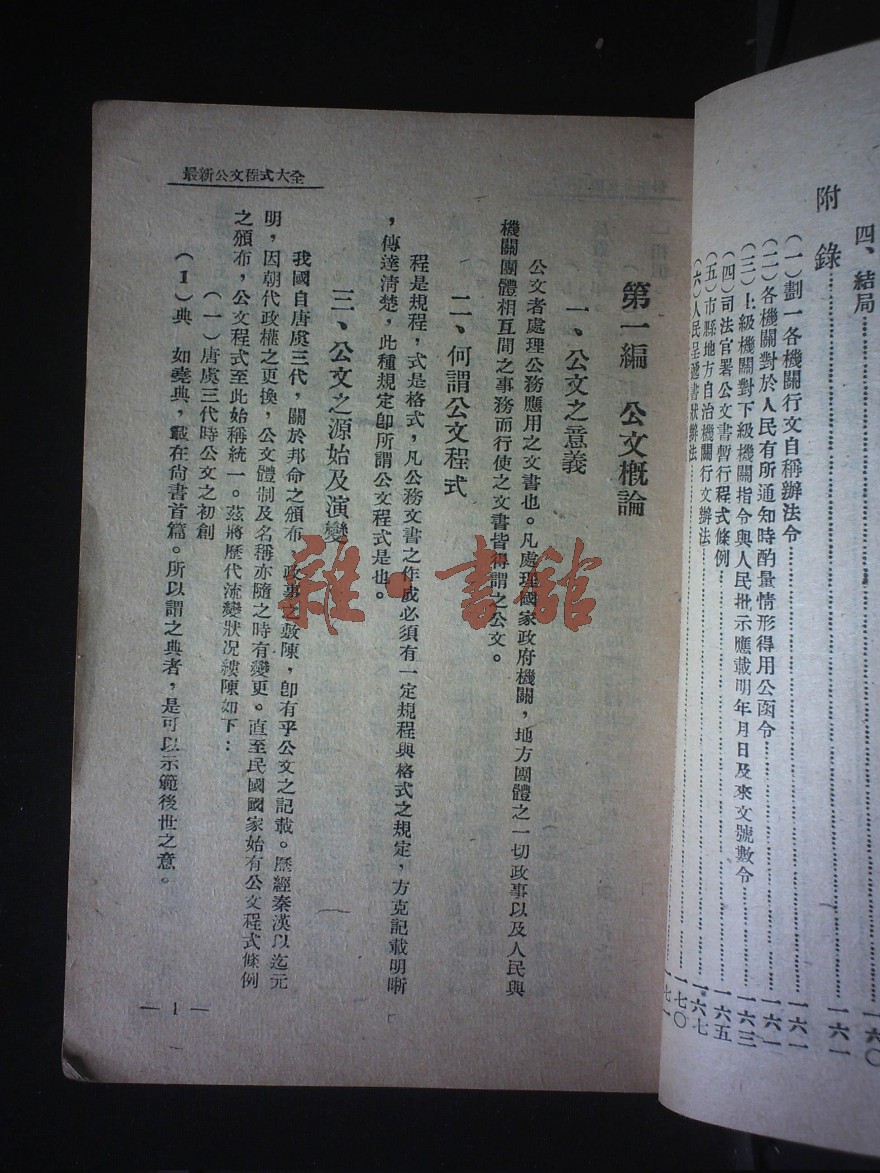 四、結局……一六〇
附錄……一六一
(一)劃一各機關行文自稱辦法令……一六一
(二)各機關對於人民有所通知時酌量情形得用公函令……一六一
(三)上級機關對下級機關指令與人民批示應載明年月日及來文號數令……一六三
(四)司法官署公文書暫行程式條例……一六五
(五)市縣地方自治機關行文辦法……一六七
(六)人民呈遞書狀辦法……一七〇
一七一
最新公文程式大全
第一編 公文概論
一、公文之意義
公文者處理公務應用之文書也。凡處理國家政府機關,地方團體之一切政事以及人民與
機關團體相互間之事務而行使之文書皆得謂之公文。
二、何謂公文程式
程是規程,式是格式,凡公務文書之作成必須有一定規程與格式之規定,方克記載明晰
,傳達清楚,此種規定卽所謂公文程式是也。
三、公文之源始及演變
我國自唐虞三代,關於邦命之頒布,政事之敷陳,卽有乎公文之記載。歷經秦漢以迄元
明,因朝代政權之更換,公文體制及名稱亦隨之時有變更。直至民國國家始有公文程式條例
之頒布,公文程式至此始稱統一。茲將歷代流變狀况縷陳如下:
(一)唐虞三代時公文之初創
(1)典 如堯典,載在尙書首篇。所以謂之典者,是可以示範後世之意。
— 1 —
雜·書館